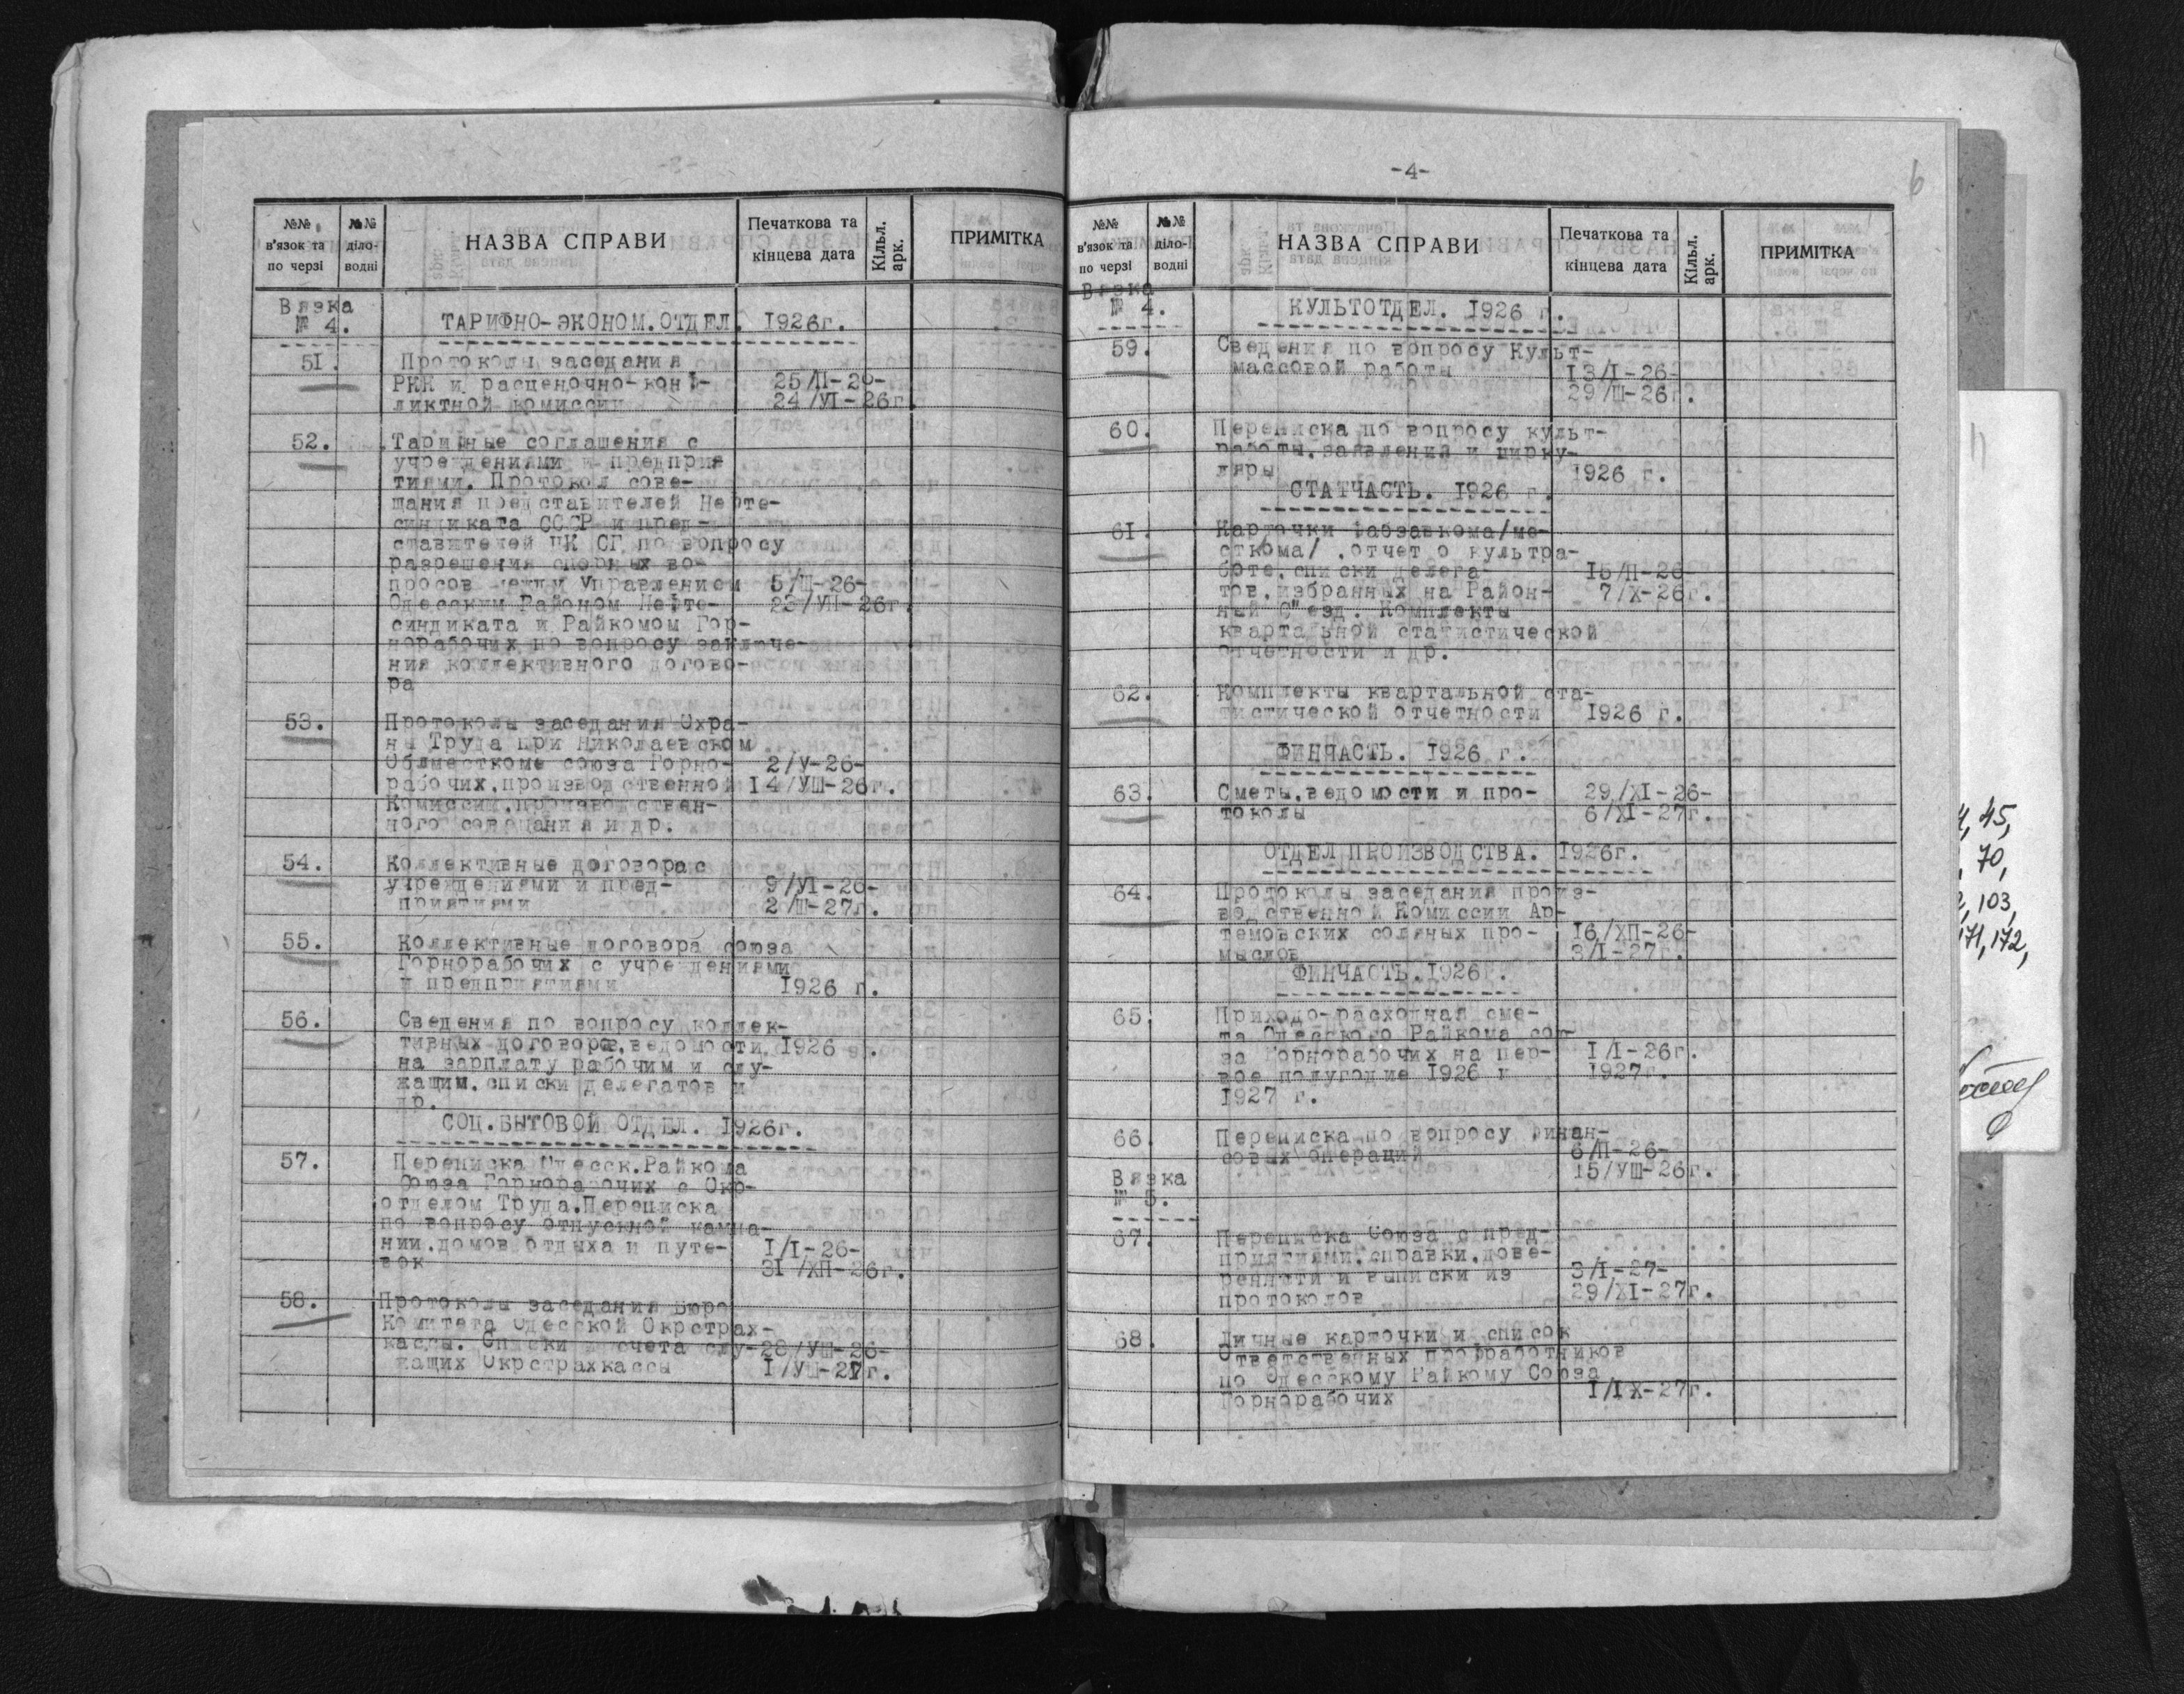 №№ в'язок та по черзі
№№ діло-водні
НАЗВА СПРАВИ
Печаткова та кінцева дата
Кільл. арк.
ПРИМІТКА
Вязка
№ 4.
ТАРИФНО-ЭКОНОМ.ОТДЕЛ. 1926г.
51. Протоколы заседания
РКК и расценочно-конф- 25/II-26-
ликтной комиссии 24/VI-26г.
52. Тарифные соглашения с
учреждениями и предприя
тиями. Протокол сове-
щания представителей Нефте-
синдиката СССР и пред-
ставителей ЦК СГ по вопросу
разрешения спорных во-
просов между Управлением 5/Ш-26-
Одесским Районом Нефте- 23/УП-26г.
синдиката и Райкомом Гор-
норабочих по вопросу заключе-
ния коллективного догово-
ра
53. Протоколы заседания Охра-
ны Труда при Николаевском
Облместкоме союза Горно- 2/У-26-
рабочих,производственной 14/УШ-26г.
Комиссии,производствен-
ного совещания и др.
54. Коллективные договора с
учреждениями и пред- 9/УI-26-
приятиями 2/Ш-27г.
55. Коллективные договора союза
Горнорабочих с учреждениями
и предприятиями 1926 г.
56. Сведения по вопросу коллек-
тивных договоров,ведомости 1926 г.
на зарплату рабочим и слу-
жащим,списки делегатов и
др.
СОЦ.БЫТОВОЙ ОТДЕЛ. 1926г.
57. Переписка Одесск.Райкома
Союза Горнорабочих с Окр-
отделом Труда.Переписка
по вопросу отпускной кампа-
нии,домов отдыха и путе- I/I-26-
вок 31/ХП-26г.
58. Протоколы заседания Бюро
Комитета Одесской Окрстрах-
кассы. Списки расчета слу- 28/УШ-26-
жащих Окрстрахкассы I/УШ-27г.
-4-
6
№№ в'язок та по черзі
№№ діло-водні
НАЗВА СПРАВИ
Печаткова та кінцева дата
Кільл. арк.
ПРИМІТКА
Вязка
№ 4.
КУЛЬТОТДЕЛ. 1926 г.
59. Сведения по вопросу Культ-
массовой работы 13/I-26-
29/Ш-26г.
60. Переписка по вопросу культ-
работы,заявлений и цирку-
ляры 1926 г.
СТАТЧАСТЬ. 1926 г.
61. Карточки фабзавкома/ме-
сткома/ ,отчет о культра-
боте,списки делега- 15/П-26-
тов,избранных на Район- 7/Х-26г.
ный С"езд. Комплекты
квартальной статистической
отчетности и др.
62. Комплекты квартальной ста-
тистической отчетности 1926 г.
ФИНЧАСТЬ. 1926 г.
63. Сметы,ведомости и про- 29/ХI-26-
токолы 6/ХI-27г.
ОТДЕЛ ПРОИЗВОДСТВА. 1926г.
64. Протоколы заседания произ-
водственной Комиссии Ар-
темовских соляных про- 16/ХП-26-
мыслов 3/I-27г.
ФИНЧАСТЬ.1926г.
65. Приходо-расходная сме-
та Одесского Райкома сою-
за Горнорабочих на пер- I/I-26г.
вое полугодие 1926 и 1927г.
1927 г.
66. Переписка по вопросу финан-
совых операций 6/П-26-
15/УШ-26г.
Вязка
№ 5.
67. Переписка Союза с пред-
приятиями,справки,дове-
ренности и выписки из 3/I-27-
протоколов 29/ХI-27г.
68. Личные карточки и список
Ответственных профработников
по Одесскому Райкому Союза
Горнорабочих I/IХ-27г.
45,
70,
103,
171, 172,